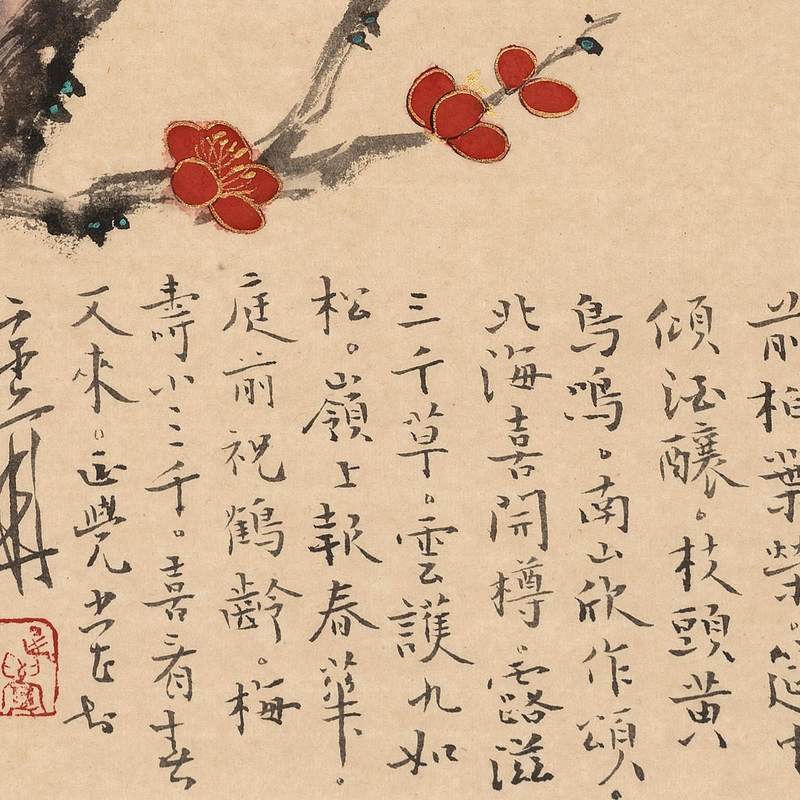 前柏葉榮。筵中
傾酒釀。枝頭黃
鳥鳴。南山欣作頌。
北海喜開樽。露滋
三千草。雲護九如
松。嶺上報春華。
庭前祝鶴齡。梅
壽小三千。喜看春
又來。正覺